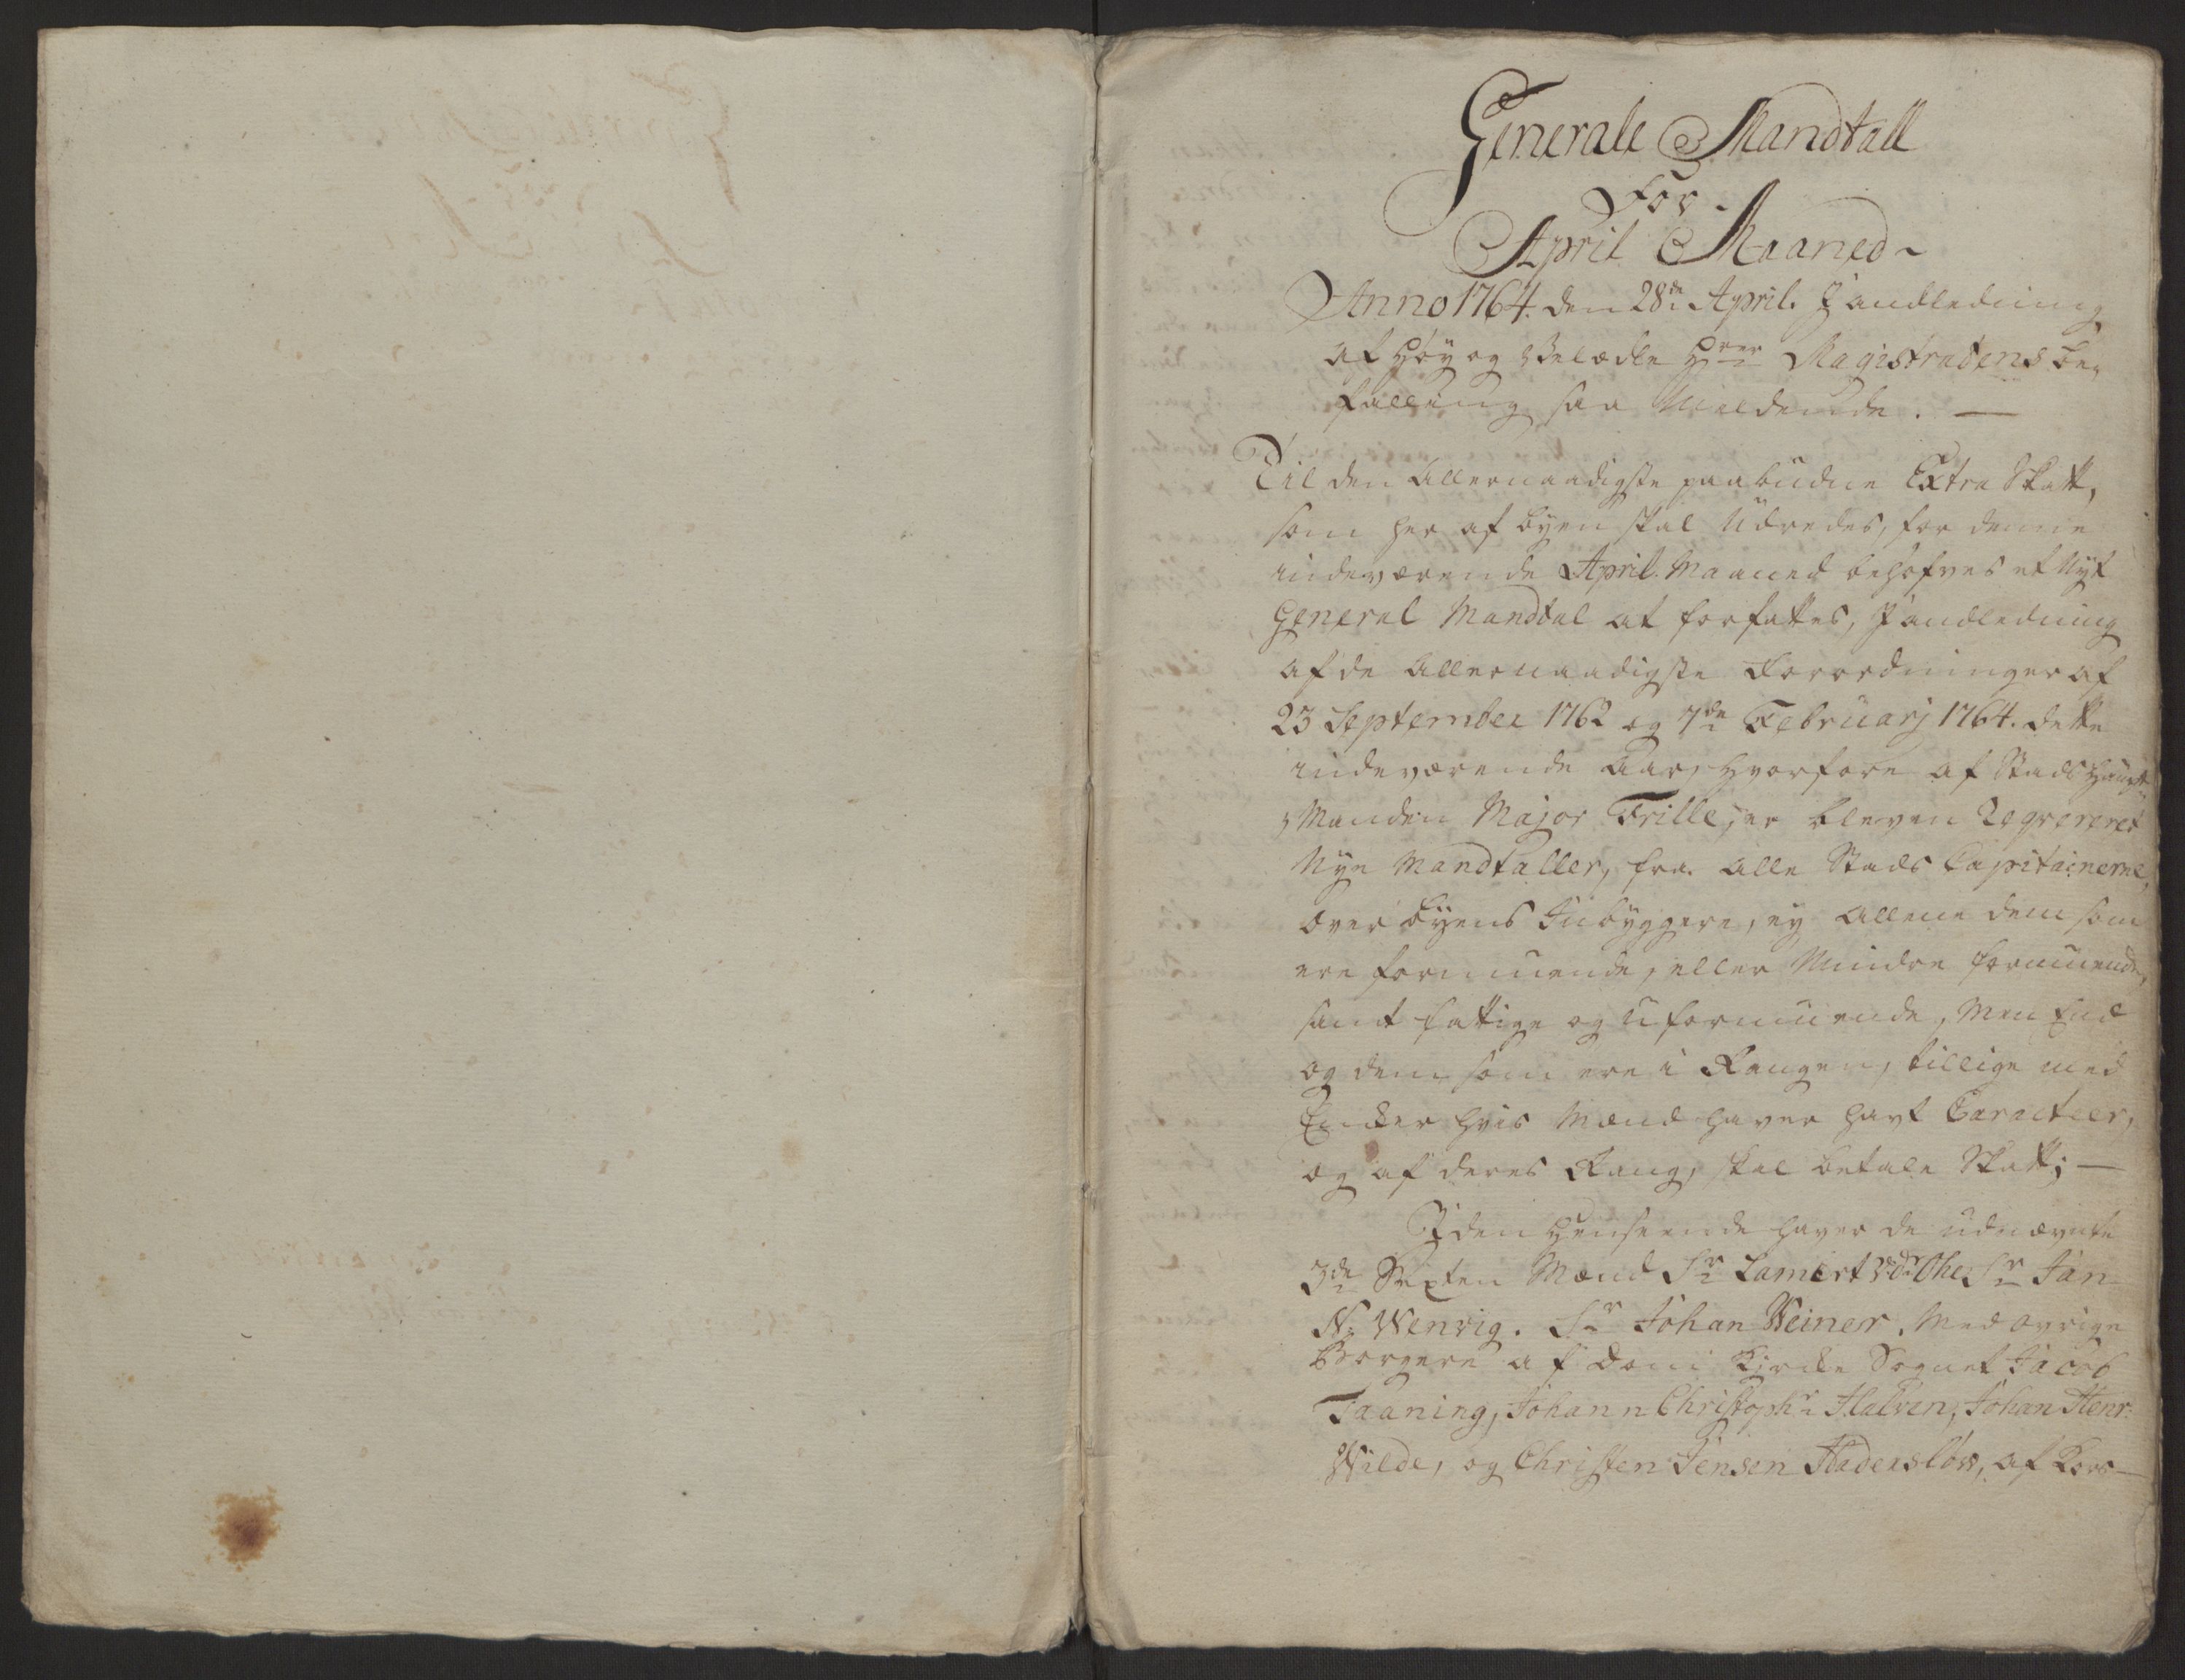 Generale Mandtall
For
April Maaned
Anno 1764. den 28de April. I andledning
af Høy og Velædle Hrrr Magistratens be,
falling saa Meldende.
Til den Allernaadigste paabudne Extra Skatt,
som her af byen skal Udredes, for denne
indeværende April. Maaned behøfves et Nyt
General Mandtal at forfattes, I andledning
af de Allernaadigste Forordninger af
23 September 1762 og 7de Februarj 1764. dette
indeværende Aar, hvorfore af Stads Haupt
Manden Major Frille, er bleven Reqvereret
Nye Mandtaller, fra Alle Stads Capitainerne,
over byens Inbyggere, ey Allene dem som
ere formuende, eller Mindre formuende,
samt fattige og Uformuende, Men End
og dem som ere i Rangen, tillige med
Encker hvis Mænd haver havt Caracteer,
og af deres Rang, skal betale Skatt;
I den Henseende haver de udnævnte
3de Sexten Mænd Sr Lambert vdr Ohe, Sr Jan
N: Wenrig. Sr Johan Weiner, Med øvrige
Borgere af Dom Kircke Sognet Jacob
Taaning, Johann Christophr Halven, Johan Henr:
Wilde, og Christen Jensen Haderslöw, af Kors-